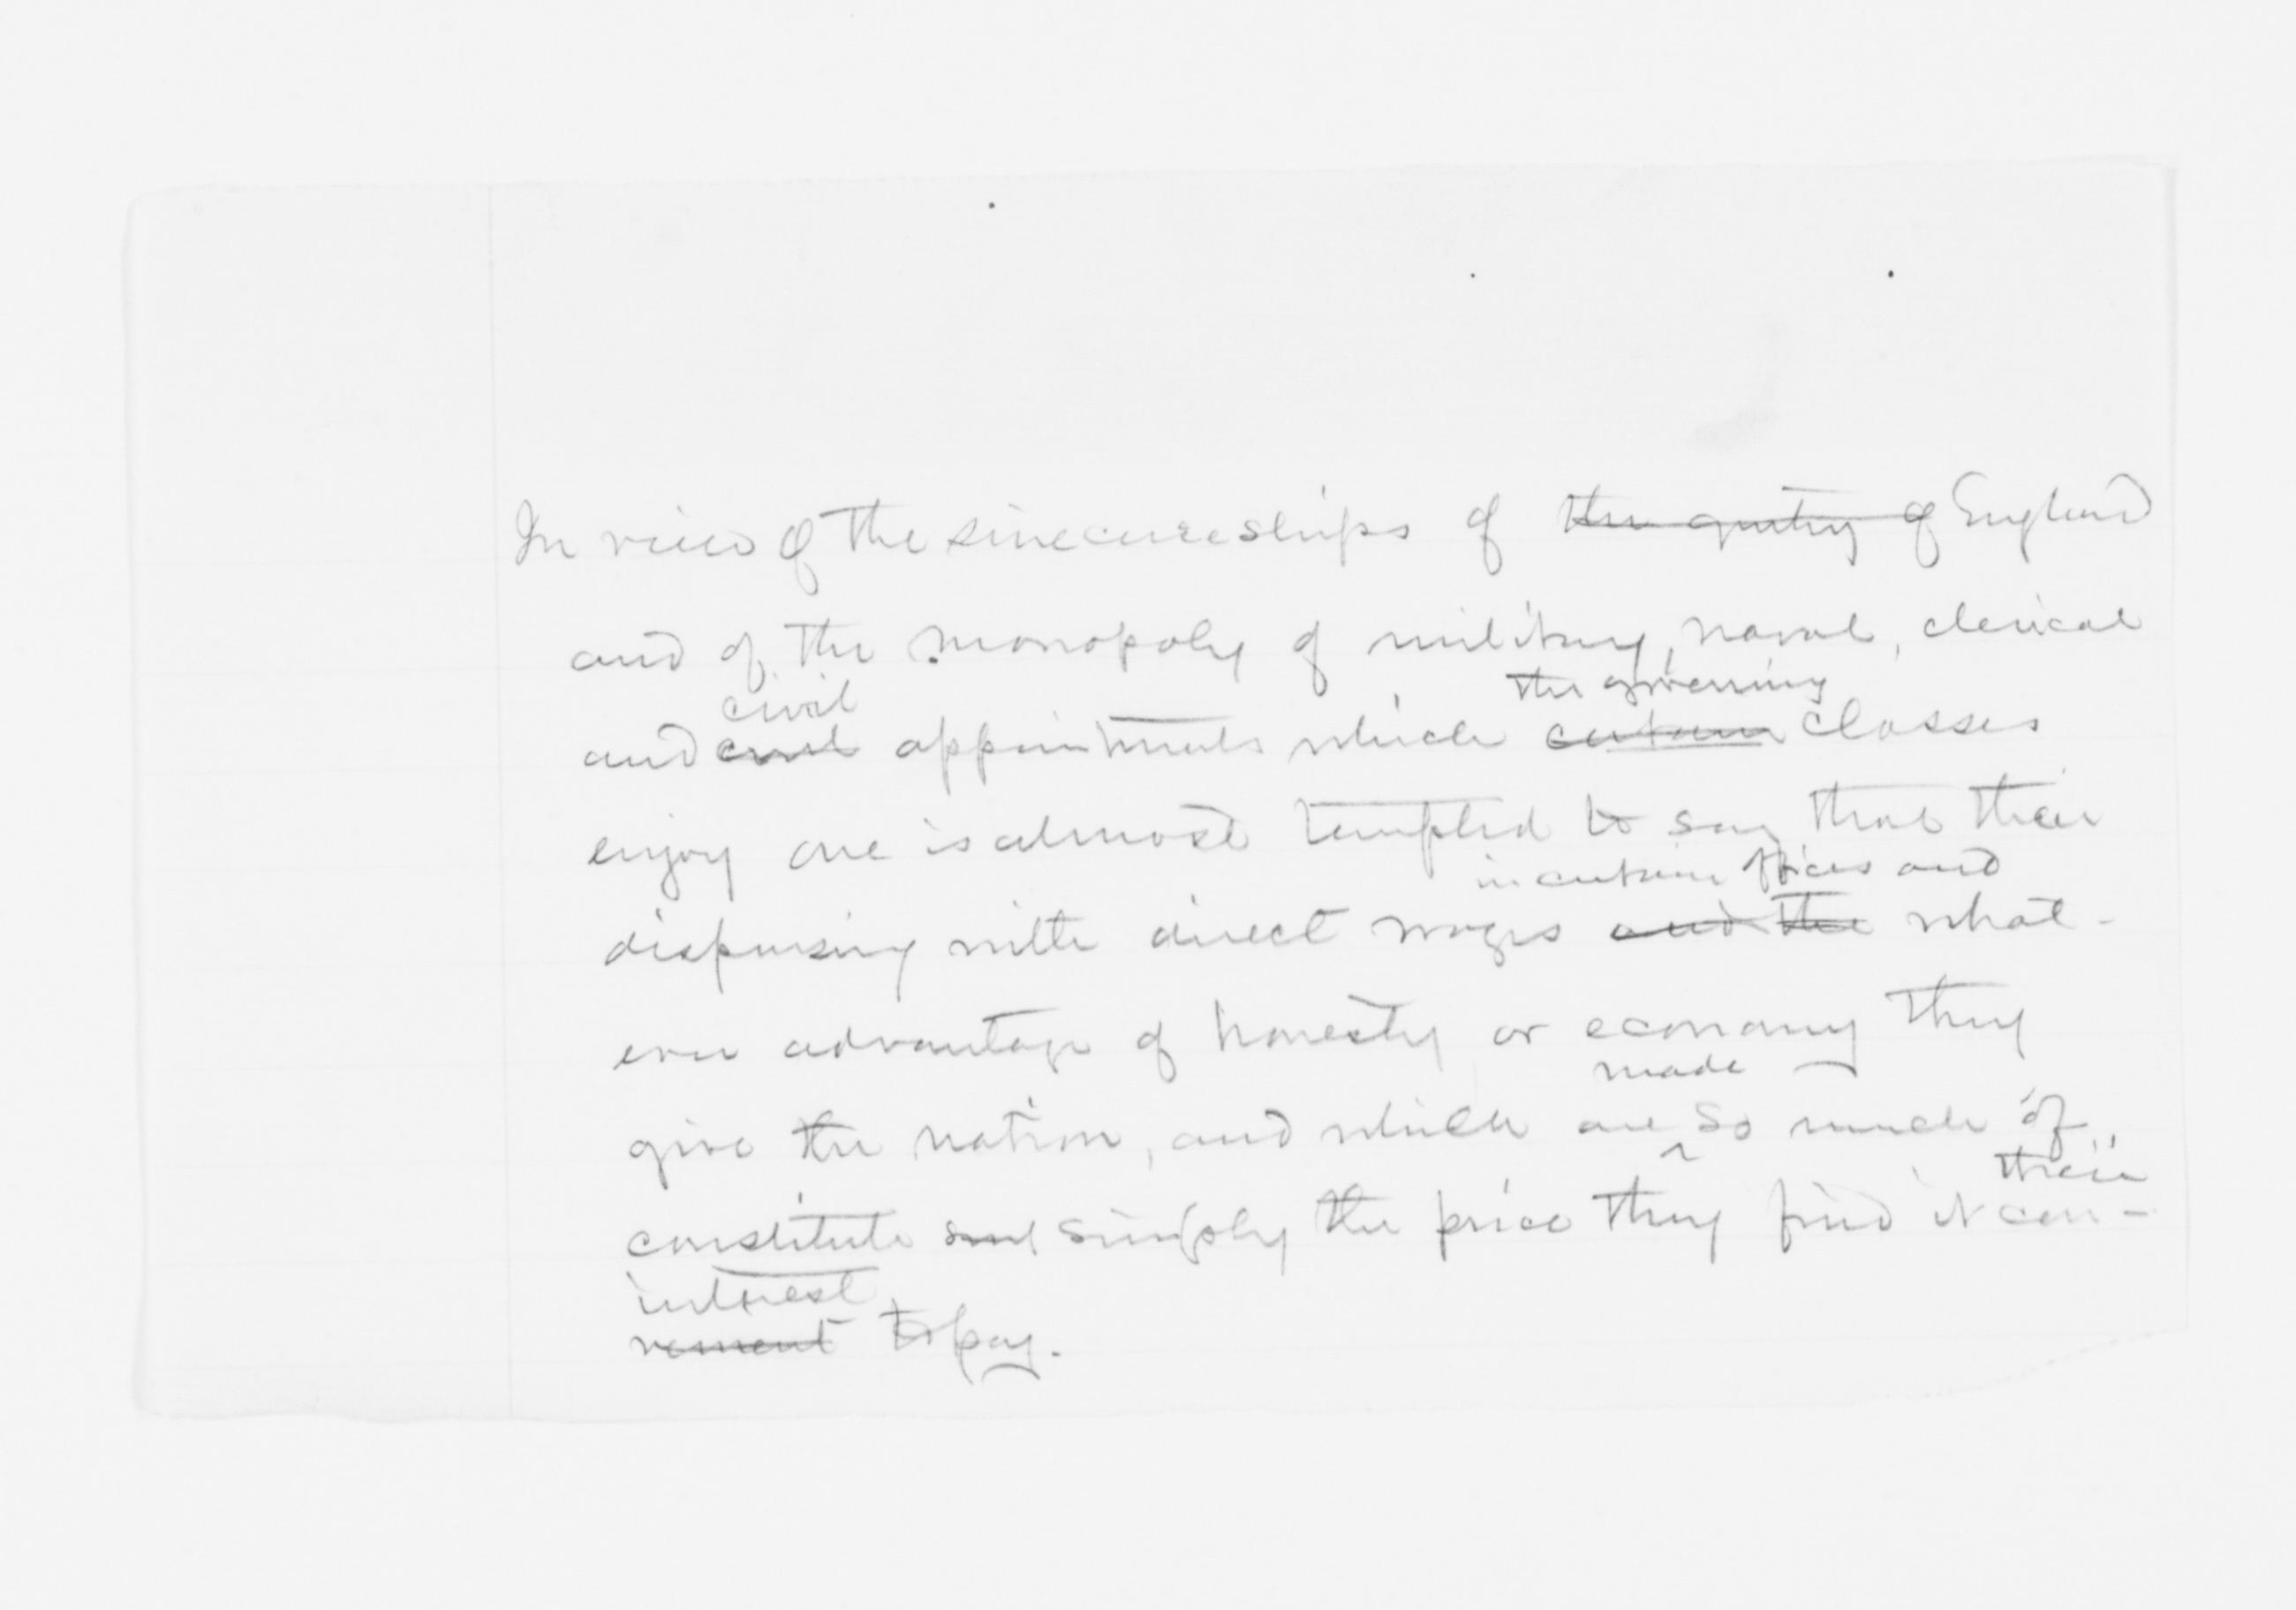 In view of the sinecureships of the gentry of England
and of the monopoly of military, naval, clerical
civil the governing
and civil appointments which certain classes
enjoy one is almost tempted to say that their
in certain offices and
dispensing with direct wages and the what-
ever advantage of honesty or economy they
made
give the nation, and which are so much of
their
constitute simply the price they find it con-
interest
venient to pay.